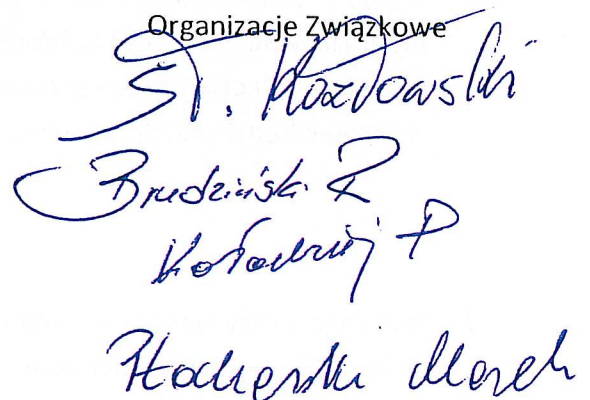 Organizacje Związkowe
ST. Kozłowski
Brudziński R
Kołodziej P
Marek